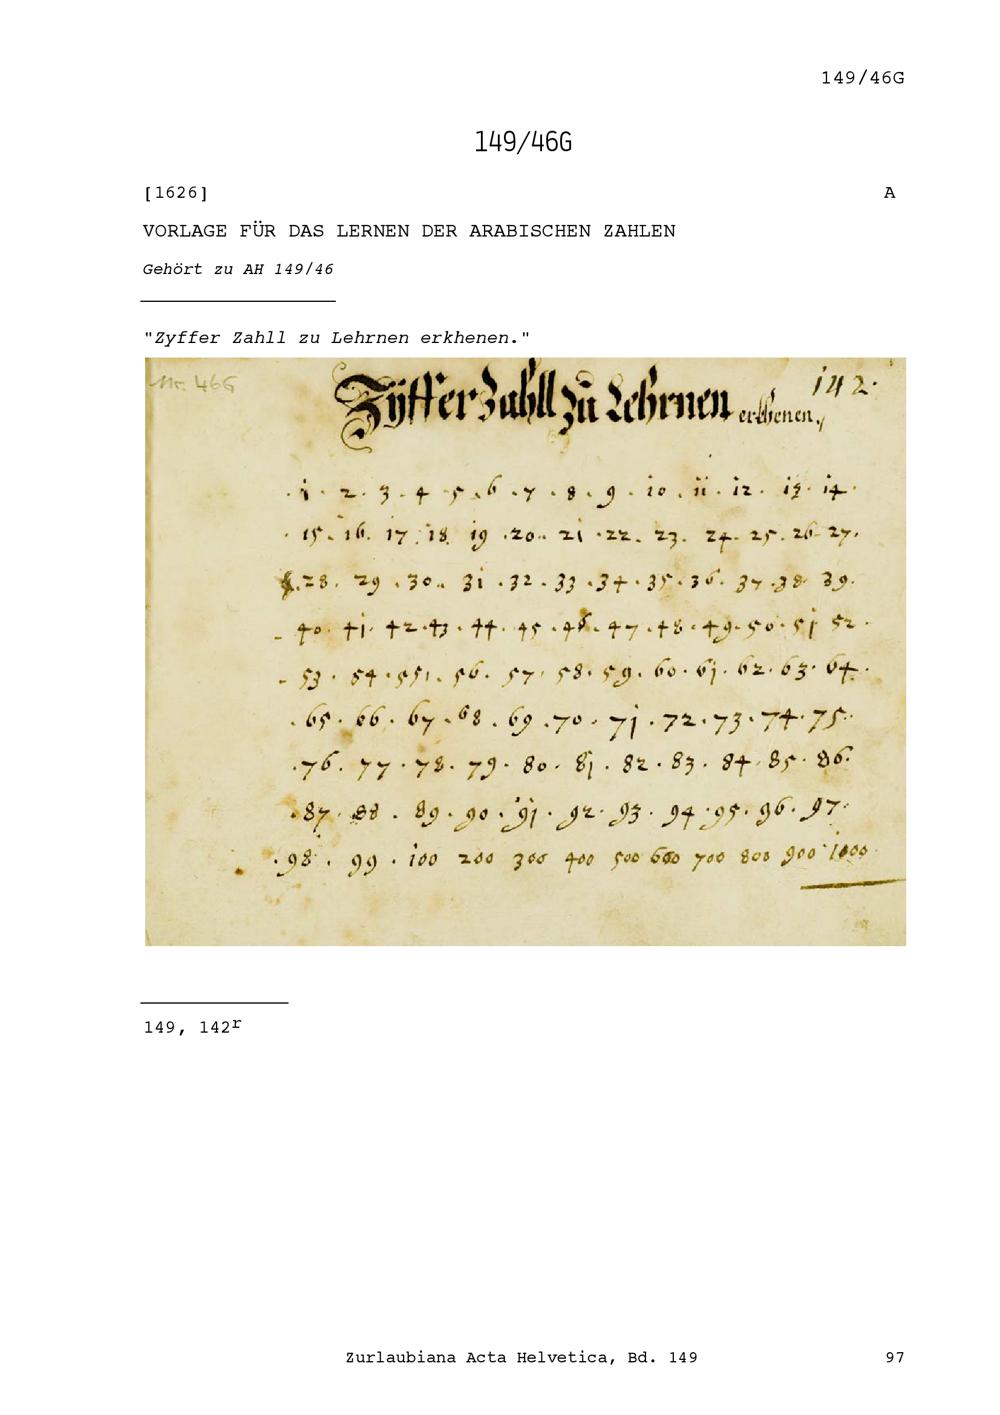 149/46G
149/46G
[1626] A
VORLAGE FÜR DAS LERNEN DER ARABISCHEN ZAHLEN
Gehört zu AH 149/46
"Zyffer Zahll zu Lehrnen erkhenen."
Nr. 46G
Zÿffer Zahll Zu Lehrnen erkhenen. 142.
. 1 . 2 . 3 . 4 . 5 . 6 . 7 . 8 . 9 . 10 . 11 . 12 . 13 . 14 .
. 15 . 16 . 17 . 18 . 19 . 20 . 21 . 22 . 23 . 24 . 25 . 26 . 27 .
. 28 . 29 . 30 . 31 . 32 . 33 . 34 . 35 . 36 . 37 . 38 . 39 .
- 40 . 41 . 42 . 43 . 44 . 45 . 46 . 47 . 48 . 49 . 50 . 51 52 .
- 53 . 54 . 55 . 56 . 57 . 58 . 59 . 60 . 61 . 62 . 63 . 64 .
. 65 . 66 . 67 . 68 . 69 . 70 . 71 . 72 . 73 . 74 . 75 .
. 76 . 77 . 78 . 79 . 80 . 81 . 82 . 83 . 84 . 85 . 86 .
. 87 . 88 . 89 . 90 . 91 . 92 . 93 . 94 . 95 . 96 . 97 .
. 98 . 99 . 100 200 300 400 500 600 700 800 900 1000
149, 142r
Zurlaubiana Acta Helvetica, Bd. 149 97